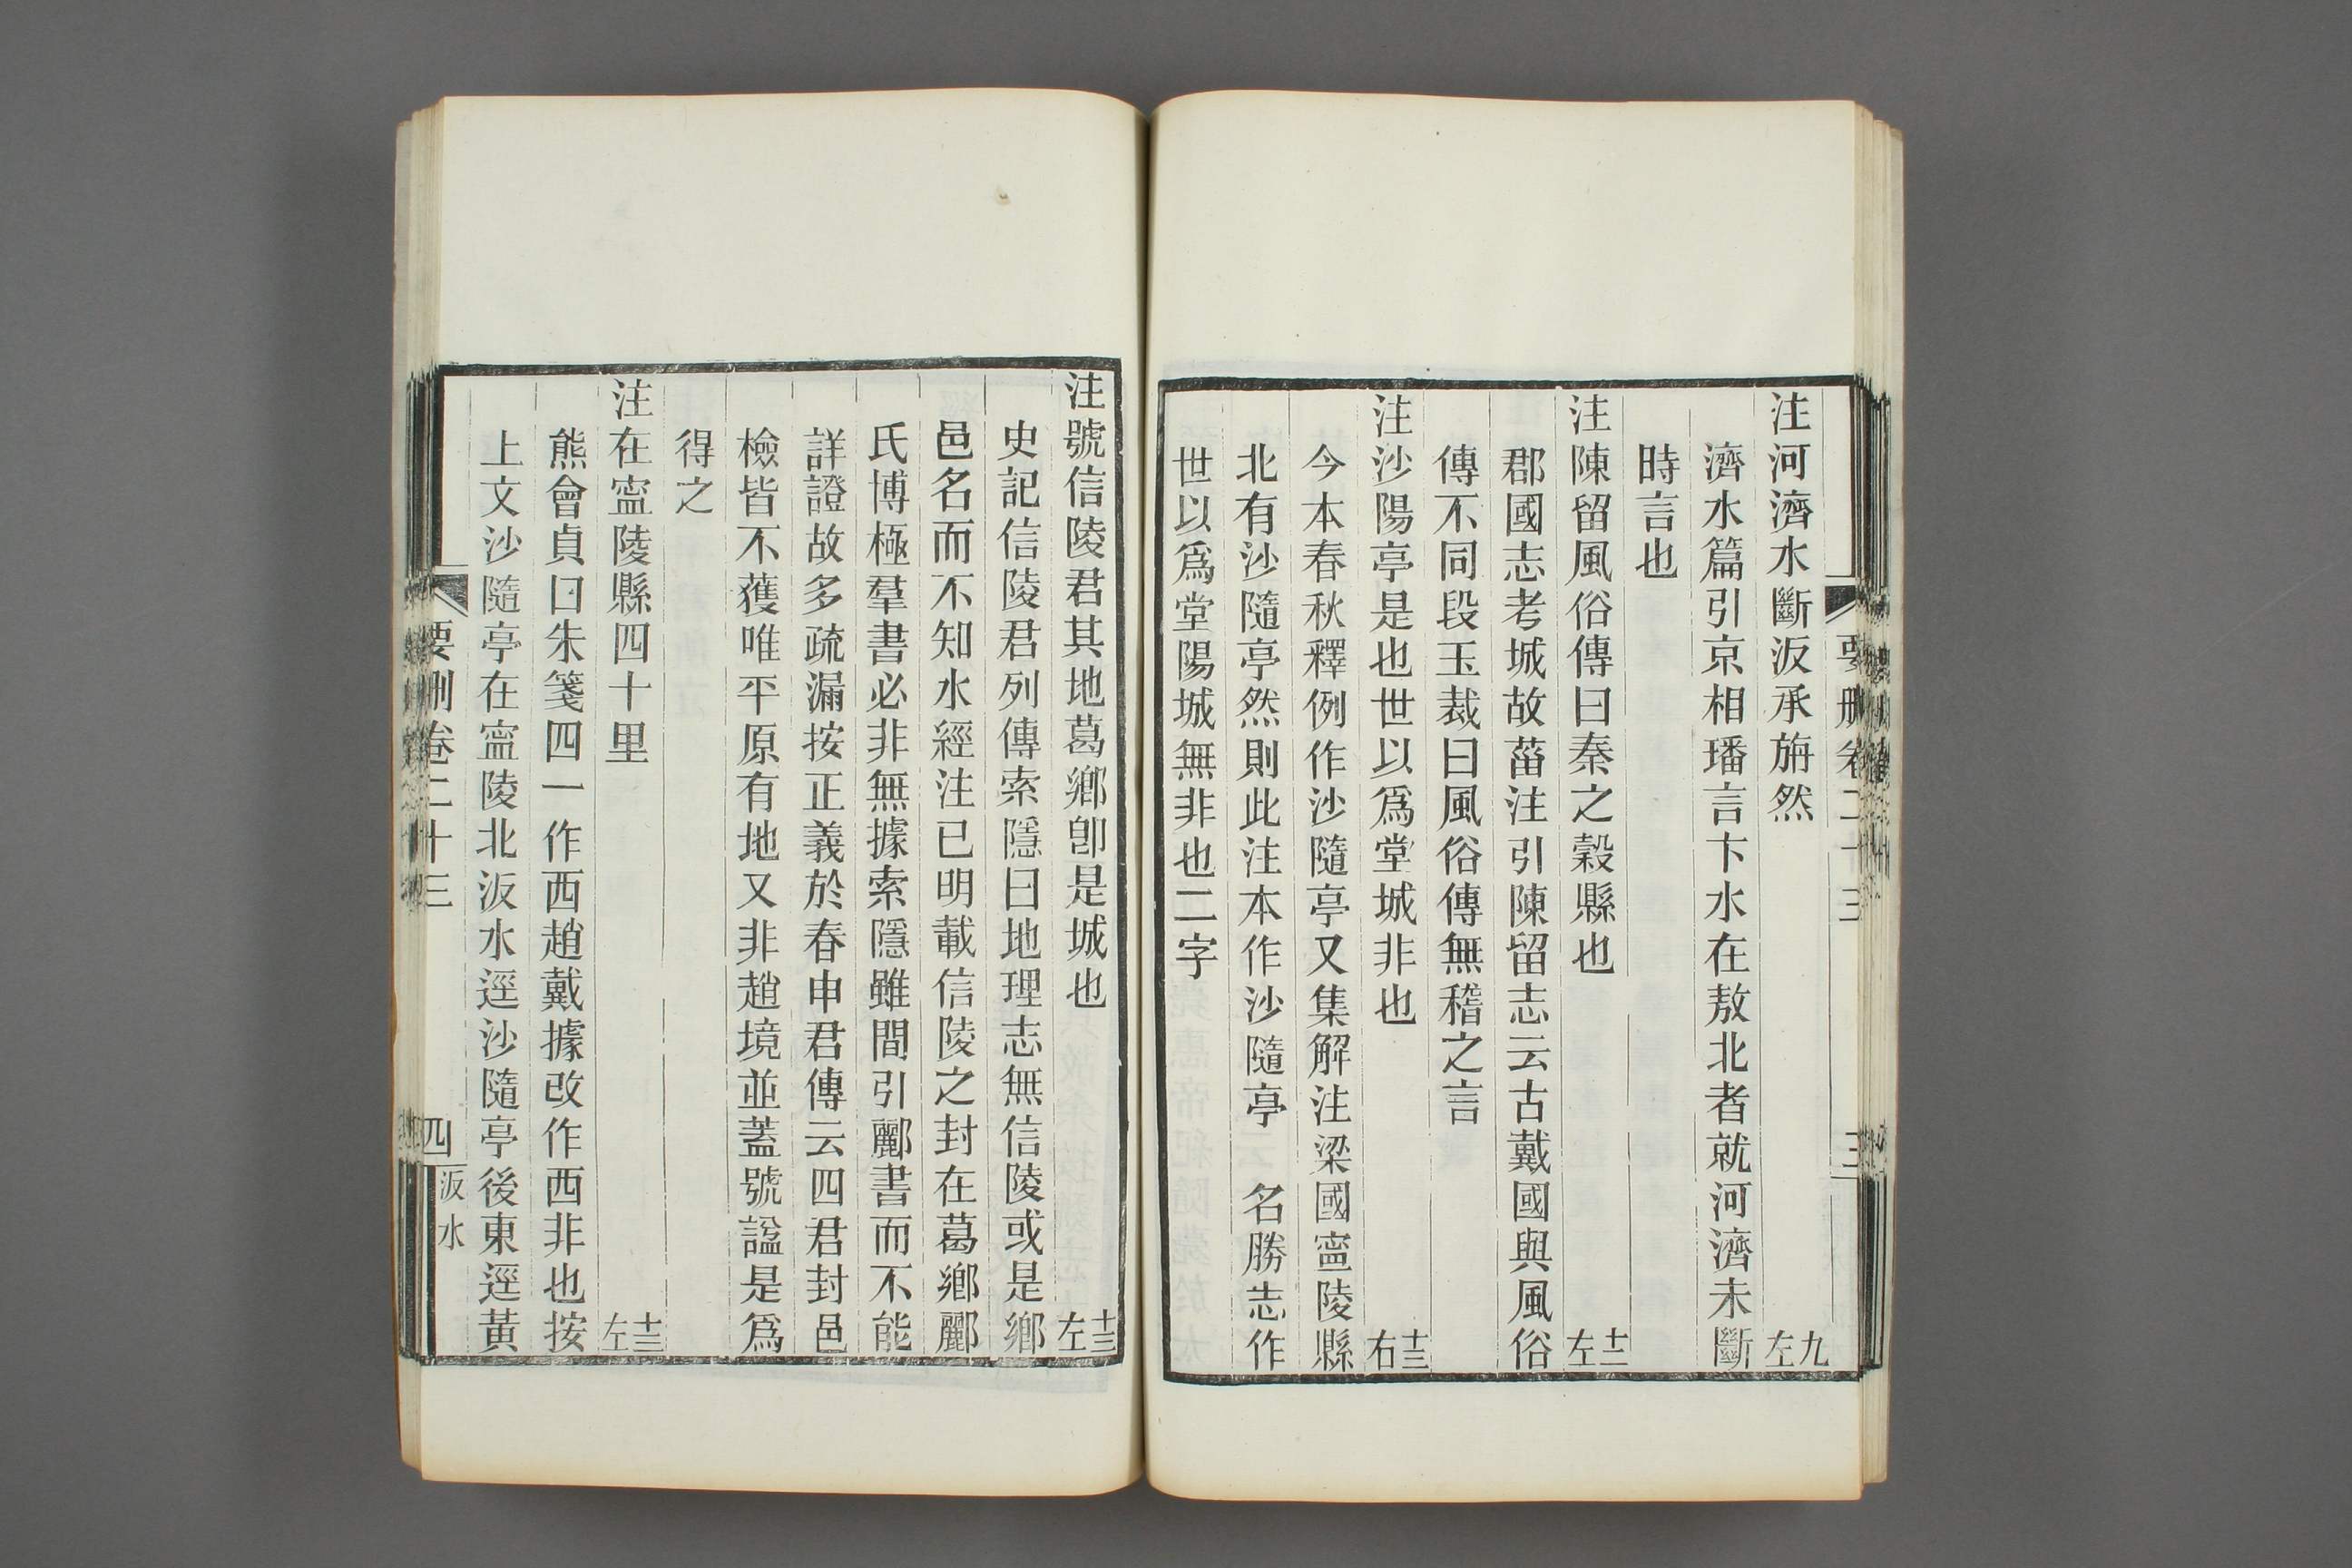 要刪卷二十三
三
注河濟水斷汳承旃然 九左
濟水篇引京相璠言卞水在敖北者就河濟未斷
時言也
注陳留風俗傳曰秦之穀縣也 十二左
郡國志考城故菑注引陳留志云古戴國與風俗
傳不同段玉裁曰風俗傳無稽之言
注沙陽亭是也世以爲堂城非也 十三右
今本春秋釋例作沙隨亭又集解注梁國寍陵縣
北有沙隨亭然則此注本作沙隨亭 名勝志作
世以爲堂陽城無非也二字
注號信陵君其地葛鄉卽是城也 十三左
史記信陵君列傳索隱曰地理志無信陵或是鄉
邑名而不知水經注已明載信陵之封在葛鄉酈
氏博極羣書必非無據索隱雖間引酈書而不能
詳證故多疏漏按正義於春申君傳云四君封邑
檢皆不獲唯平原有地又非趙境並蓋號諡是爲
得之
注在寍陵縣四十里 十三左
熊會貞曰朱箋四一作西趙戴據改作西非也按
上文沙隨亭在寍陵北汳水逕沙隨亭後東逕黃
要刪卷二十三
四
汳水